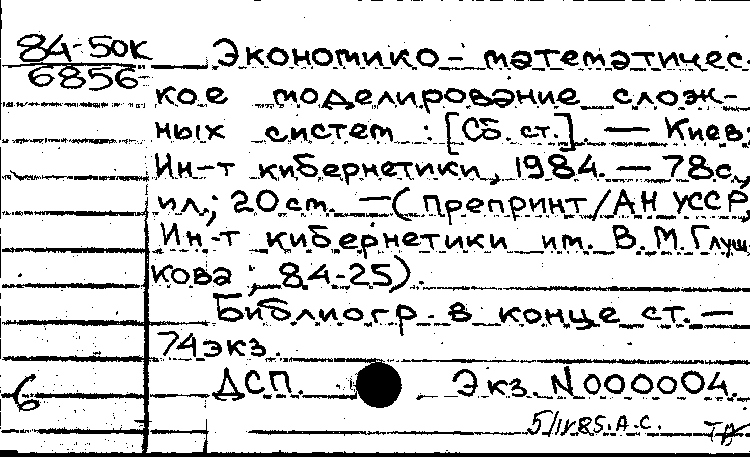 84-50к Экономико-математичес-
6856
кое моделирование слож-
ных систем : [Сб. ст.]. — Киев,
Ин-т кибернетики, 1984. — 78с.,
ил.; 20 см. — (Препринт/АН УССР,
Ин-т кибернетики им. В.М.Глуш-
кова ; 84-25).
Библиогр. в конце ст. —
74 экз.
6 ДСП. Экз. N000004.
5/IV.85. А.С.